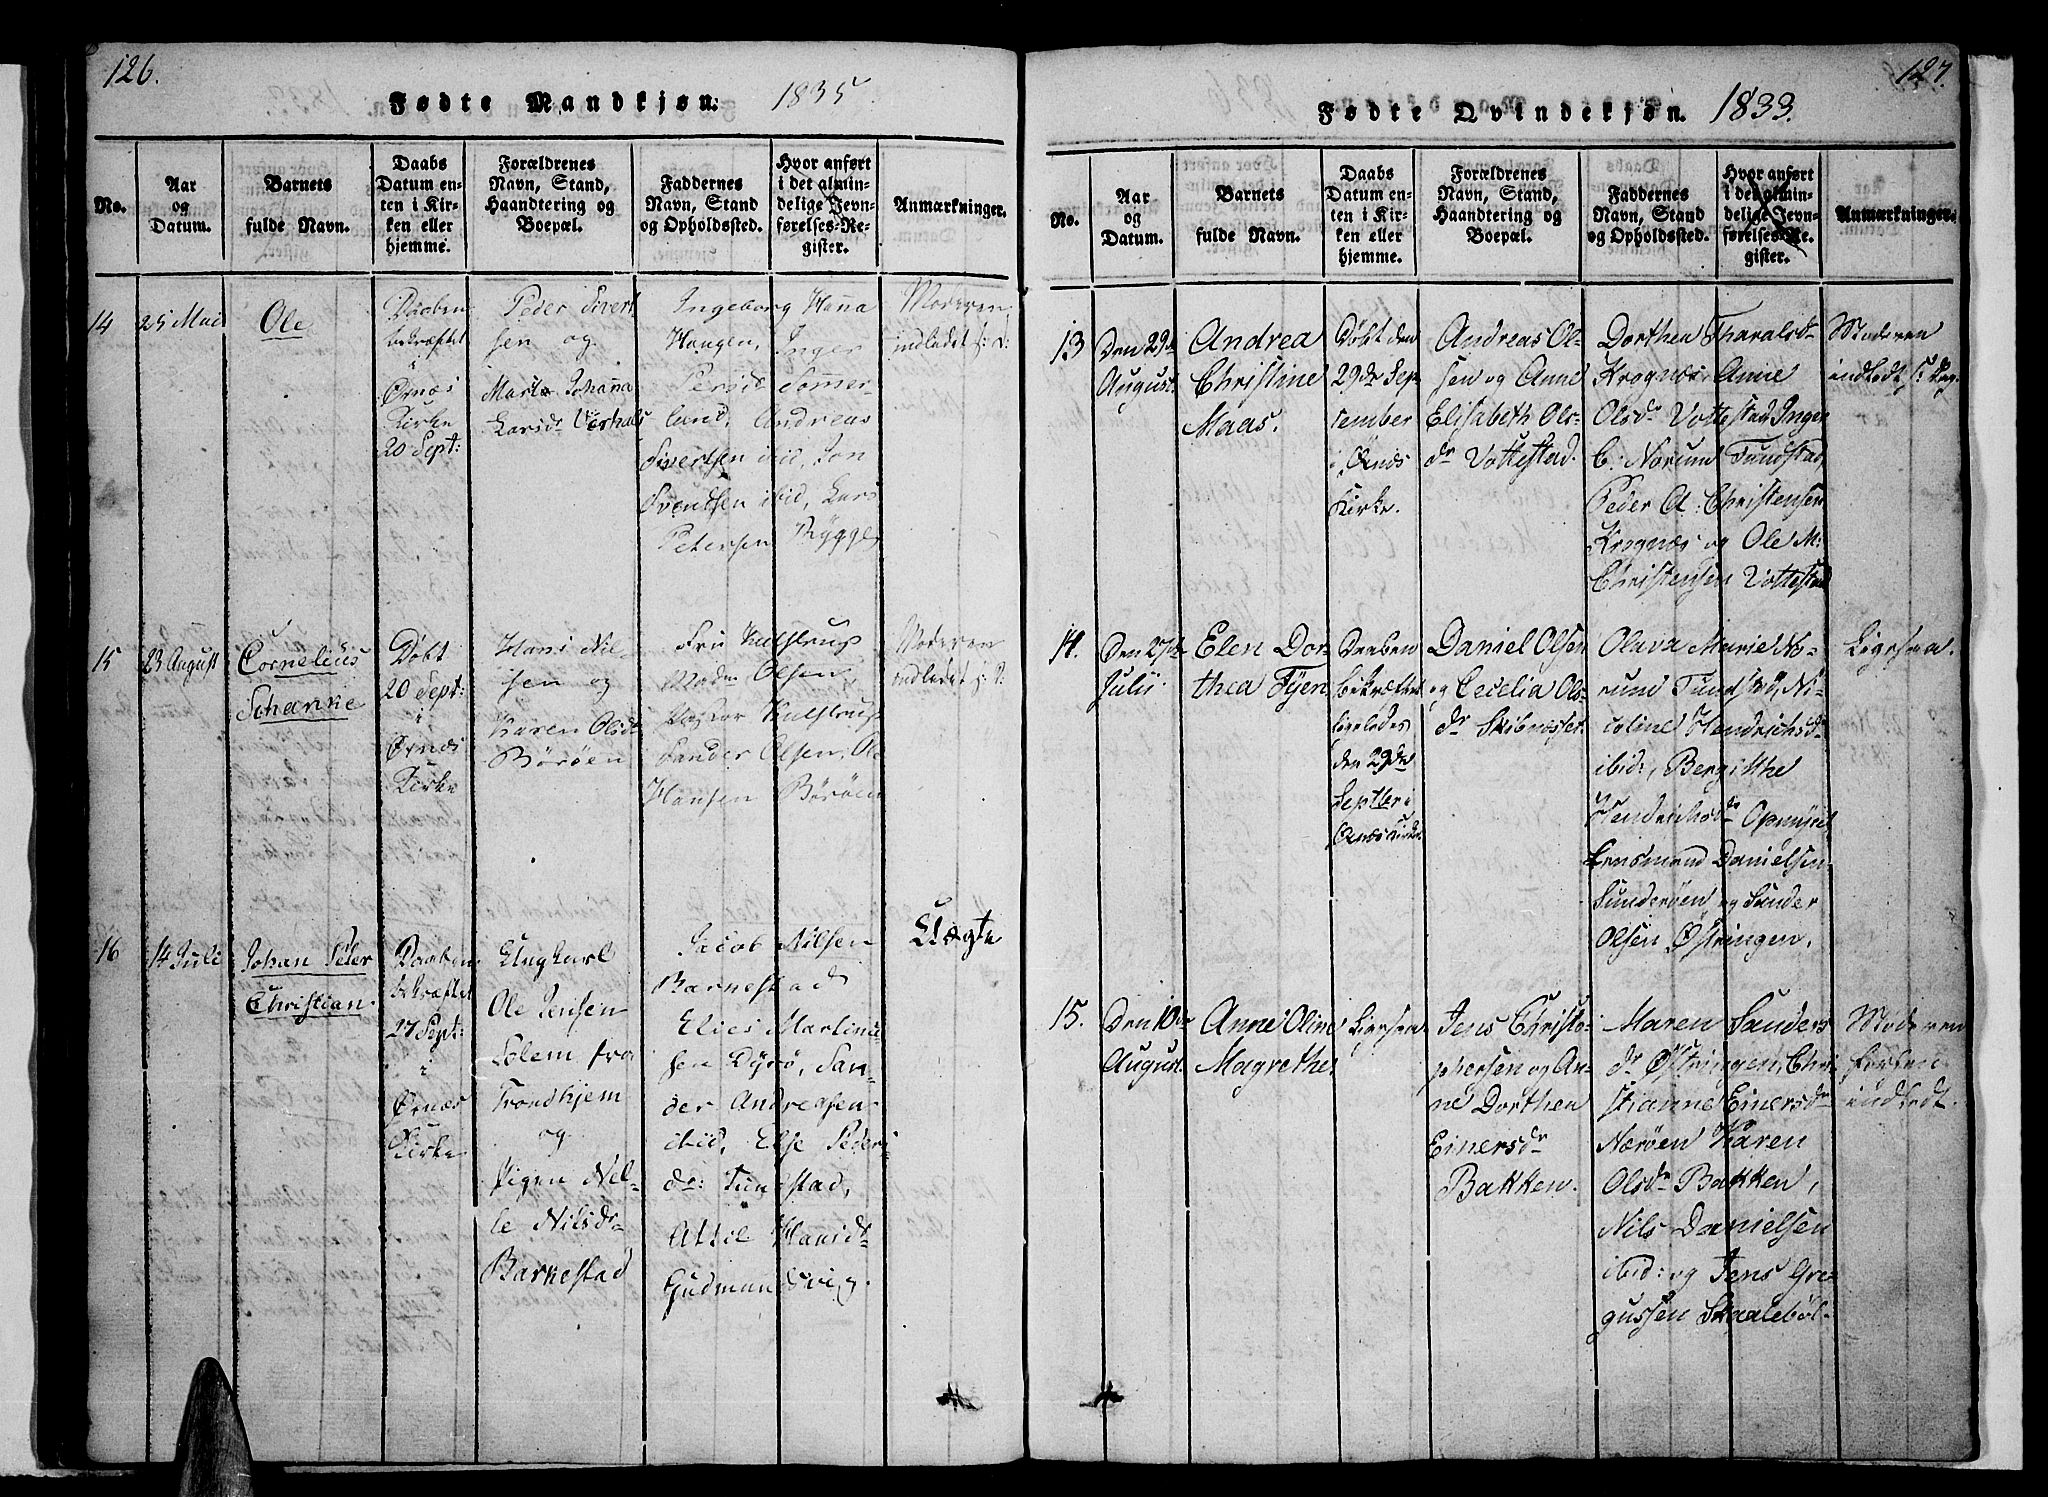 126.
Fødte Mandkjøn. 1835.
No.
Aar
og
Datum.
Barnets
fulde Navn.
Daabs
Datum en-
ten i Kir-
ken eller
hjemme.
Forældrenes
Navn, Stand,
Haandtering og
Boepæl.
Faddernes
Navn, Stand
og Opholdssted.
Hvor anført
i det almin-
delige Jevn-
førelses-Re-
gister.
Anmærkninger.
14
25 Mai
Ole
Daaben
bekræftet
i
Ørnæs
Kirke
20 Sept:
Peder Sivert
sen og
Marta Johana
Larsdr
Ingeborg Hana
Haugen, Inger
Persdr Sommer
land, Andreas
Sivertsen ibid, Jon
Svendsen ibid, Lars
Petersen Rygge
Moderen
indledet s: D:
15
23 August
Cornelius
Schanke
Døbt
20 Sept:
i
Ørnæs
Kirke
Hans Nil-
sen og
Karen Olsdr
Børøen
Fru Kulstrup
Madm Olsen,
Pastor Kulstrup
Sander Olsen, Ole
Hansen Børøen
Moderen
indledet s: D:
16
14 Juli
Johan Peter
Christian.
Daaben
bekræftet
27 Sept:
i
Ørnæs
Kirke
Ungkarl
Ole Jensen
Solem fra
Trondhjem
og
Pigen Nel-
le Nilsdr
Barkestad
Jacob Nilsen
Barnestad
Elies Martinu-
sen Dyrø, San-
der Andreasen
ibid, Else Peders
dr: Tunstad,
Hansdr
Gudmundsvig.
Uægte
127.
Fødte Qvindekjøn. 1833.
No.
Aar
og
Datum.
Barnets
fulde Navn.
Daabs
Datum en-
ten i Kir-
ken eller
hjemme.
Forældrenes
Navn, Stand,
Haandtering og
Boepæl.
Faddernes
Navn, Stand
og Opholdssted.
Hvor anført
i det almin-
delige Jevn-
førelses-Re-
gister.
Anmærkninger.
13
Den 29de
August.
Andrea
Christine
Maas.
Døbt den
29de Sep-
tember
i Ørnæs
Kirke.
Andreas Ol-
sen og Anne
Elisabeth Ols-
dr Vottestad.
Dorthea Tharalsdr
Krognæs Anne
Olsdr Vottestad Inger
C: Norum Tundstad,
Peder A: Christensen
Krognæs og Ole M:
Christensen Vottestad
Moderen
indledt s: Dag.
14.
Den 27de
Julii.
Elen Dor-
thea Fyen
Daaben
bekræftet
ligeledes
den 29de
Septbr i
Ørnæs Kirke.
Daniel Olsen
og Cecilia Ols-
dr Skibnæsset
Olava Marie No-
rum Tundstad, Ni-
coline Hendrichsdr
ibid:, Bergitthe
Hendrichsdr
Lensmand Danielsen
Sunderøen og Sander
Olsen Østringen.
Ligesaa.
15.
Den 10de
August.
Anne Oline
Magrethe
Ligesaa
Jens Christo-
phersen og An-
ne Dorthea
Einersdr
Bakken.
Maren Sanders
dr Østringen, Chri-
stianne Einersdr
Nærøen Karen
Olsdr Bakken,
Nils Danielsen
ibid: og Jens Gre-
gussen Skaalebøl-
Moderen
forhen
indledt.